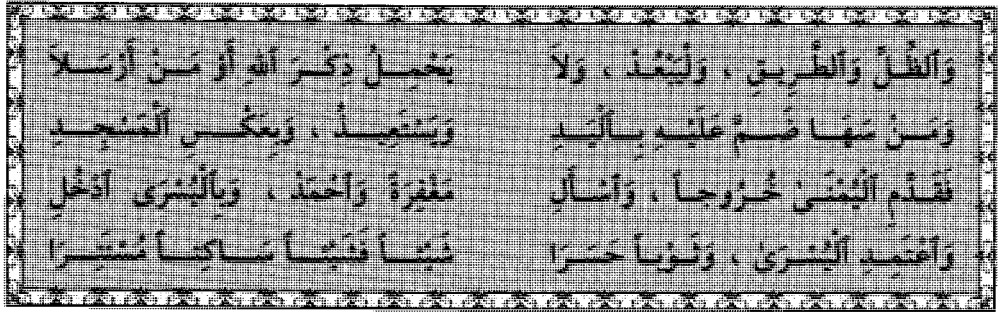 وَٱلظِّلَّ وَٱلطَّرِيقِ ، وَلْيَبْعُدْ ، وَلاَ يَحْمِلْ ذِكْرَ ٱللهِ أَوْ مَنْ أَرْسَلاَ
وَمَنْ سَهَا ضَمَّ عَلَيْهِ بِٱلْيَدِ وَيَسْتَعِيذُ ، وَبِعَكْسِ ٱلْمَسْجِدِ
فَقَدِّمِ ٱلْيُمْنَىٰ خُرُوجاً ، وَٱسْأَلِ مَغْفِرَةً وَٱحْمَدْ ، وَبِٱلْيُسْرَى ٱدْخُلِ
وَٱعْتَمِدِ ٱلْيُسْرَىٰ ، وَثَوْباً حَسَرَا شَيْئاً فَشَيْئاً سَاكِتاً مُسْتَتِرَا